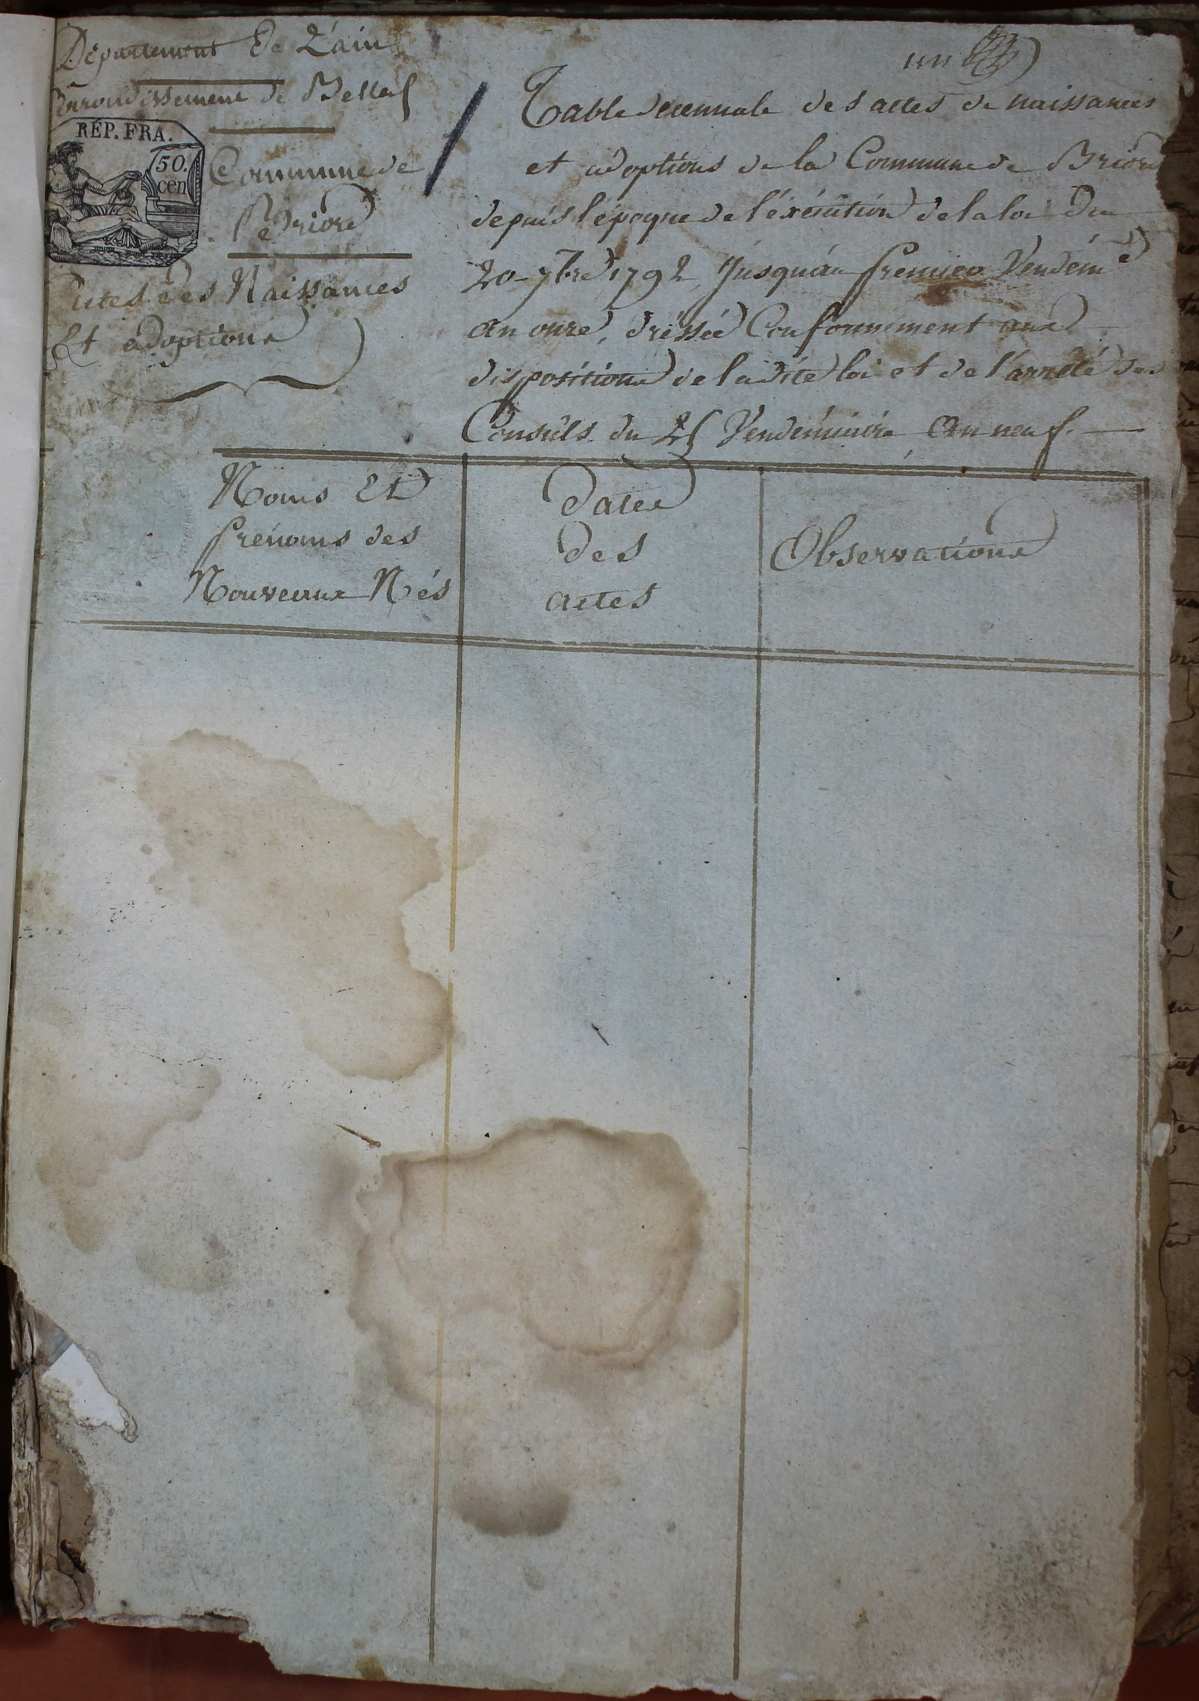 Département De L'ain
Arrondissement de Belley
RÉP. FRA.
50.
cen
Commune de
Briord
Actes des Naissances
Et adoptions
un
Table decennale des actes de naissances
et adoptions de la Commune de Briord
depuis l'époque de l'éxécution de la loi du
20 7bre 1792 Jusquau premier Vendém.e
an onze, dréssée Conformément aux
dispositions de la dite loi et de l'arrêté des
Consúls du 25 Vendémiaire an neuf.
Noms Et
prénoms des
Nouveaux Nés
Dates
des
actes
Observations